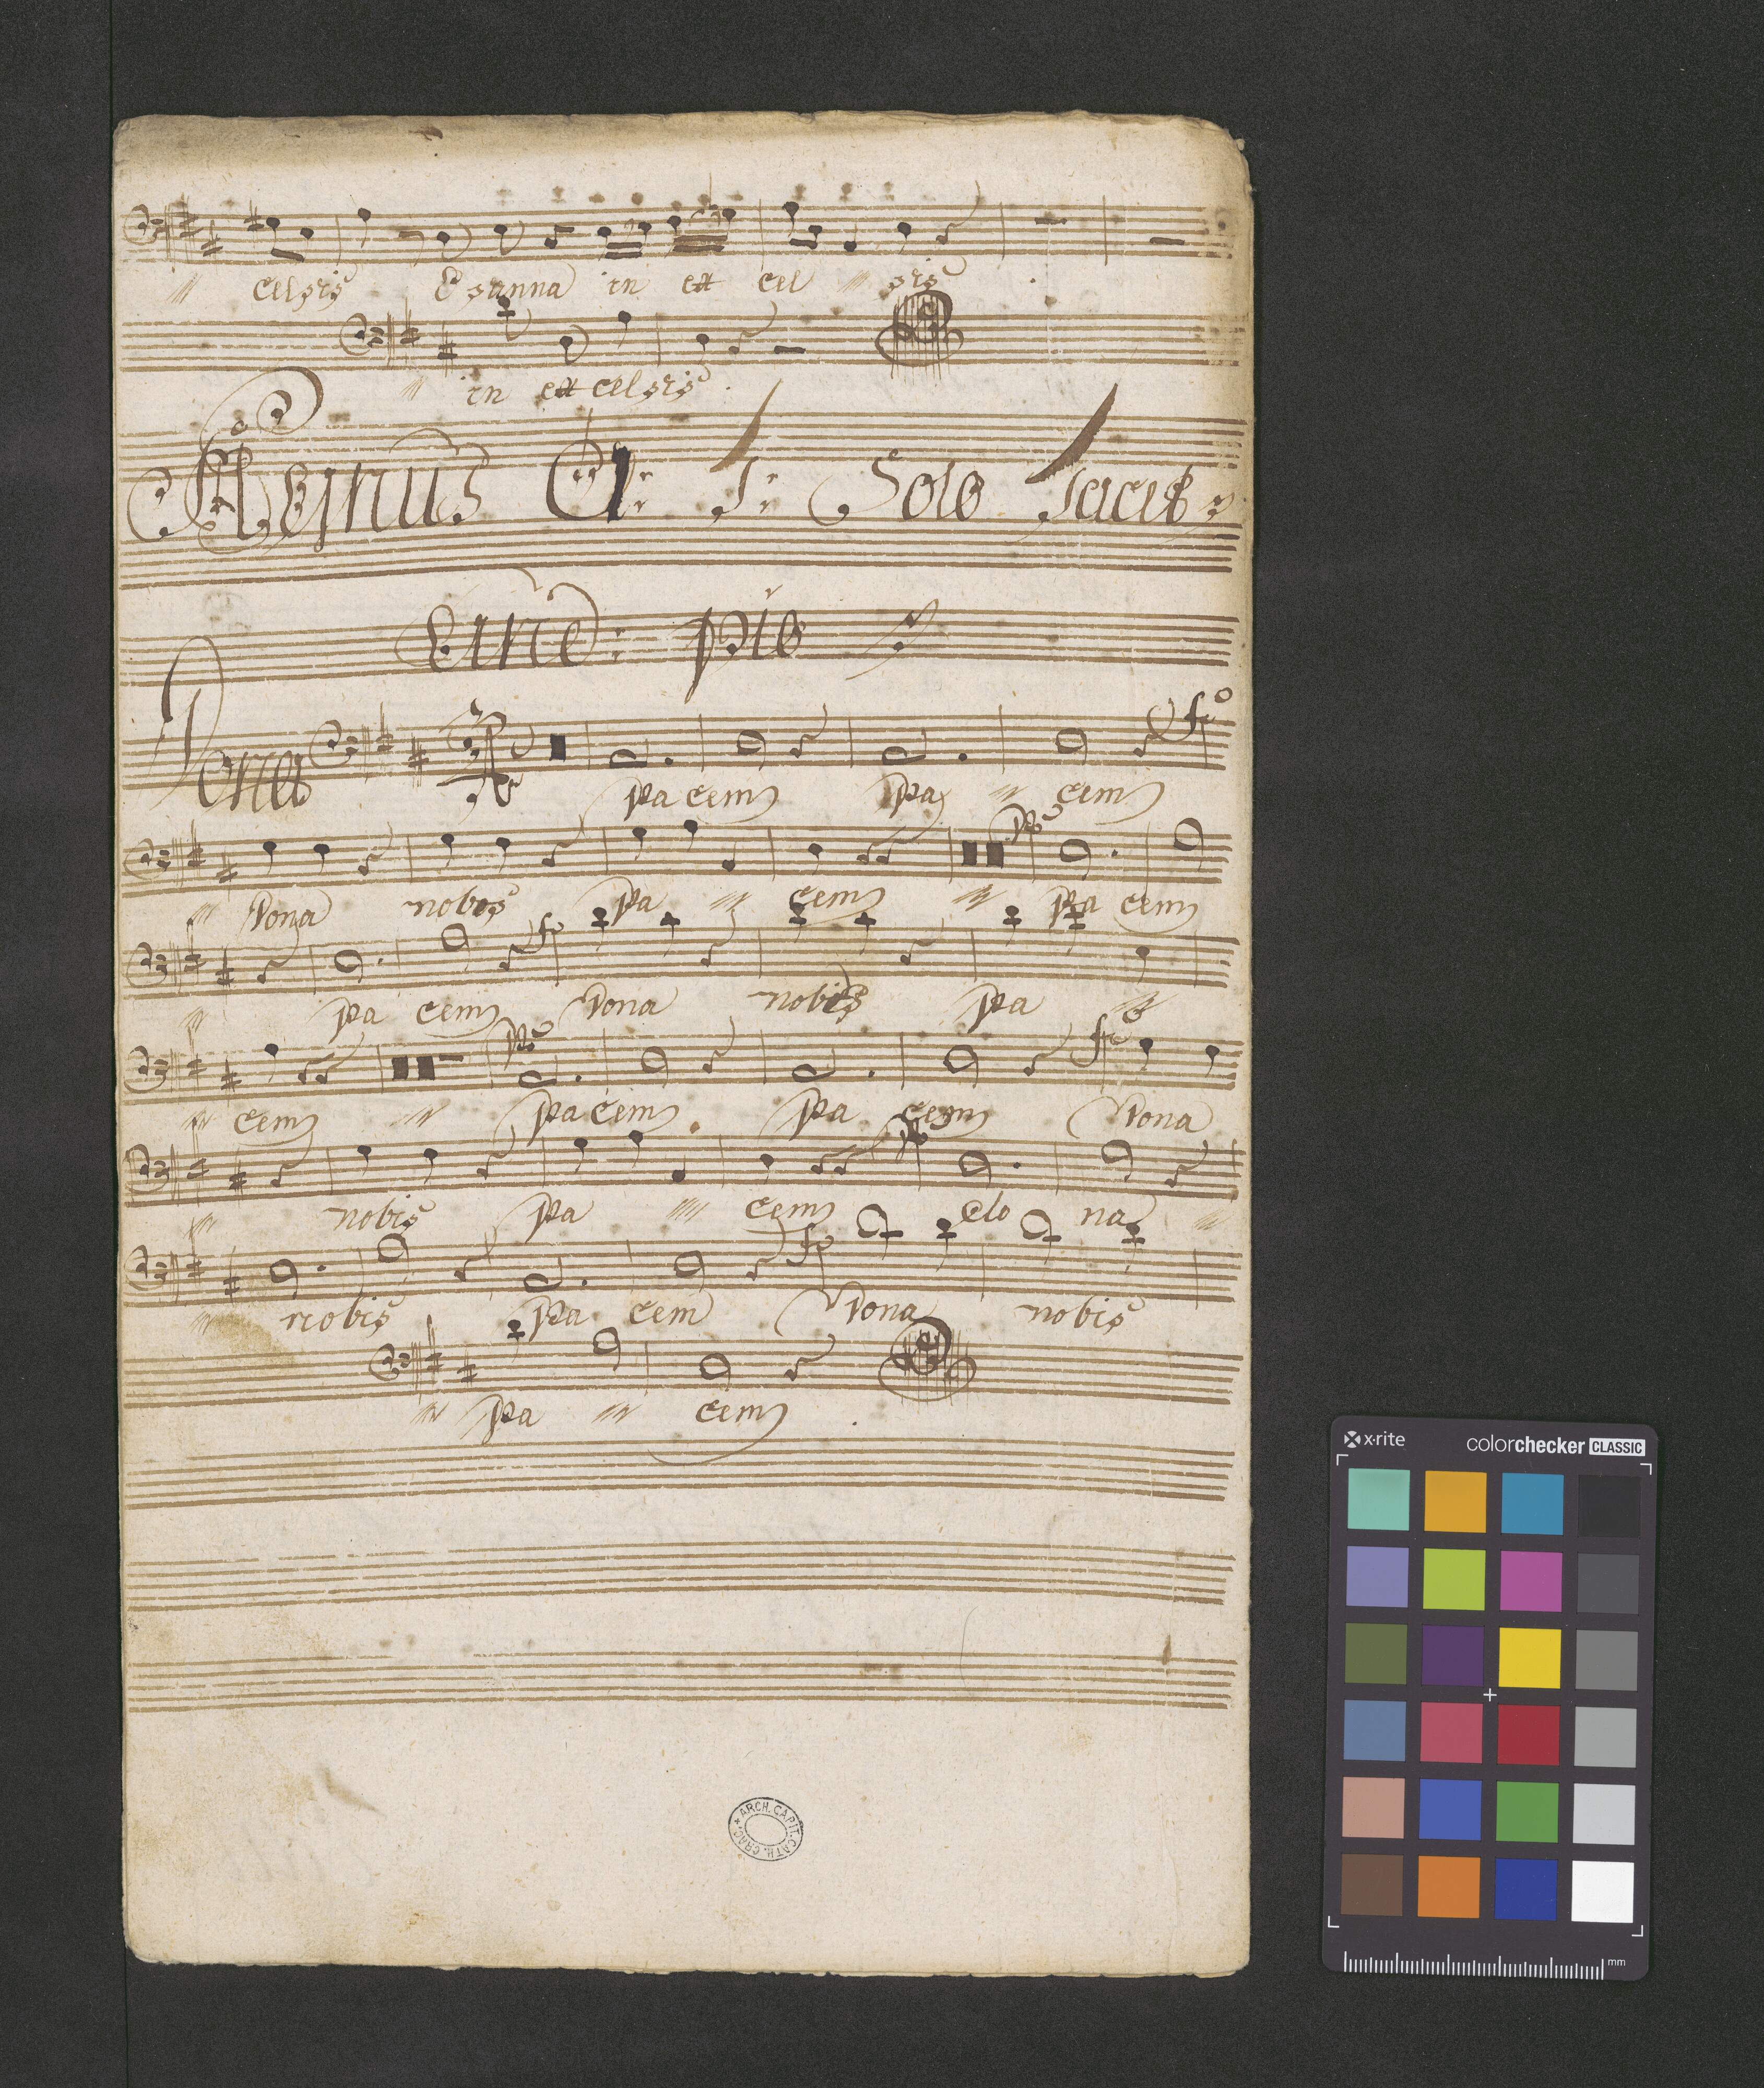 celsis Osanna in ex cel sis
in ex celsis.
Agnus D: J: Solo Tacet
pio
Dona pa cem pa cem fo
Dona nobis pa cem po pa cem
pa cem fo Dona nobis pa
cem po pa cem pa cem fo Dona
nobis pa cem po do na
nobis pa cem fo Dona nobis
pa cem
ARCH. CAPIT. CATH. CRAC.
x-rite colorchecker CLASSIC
mm